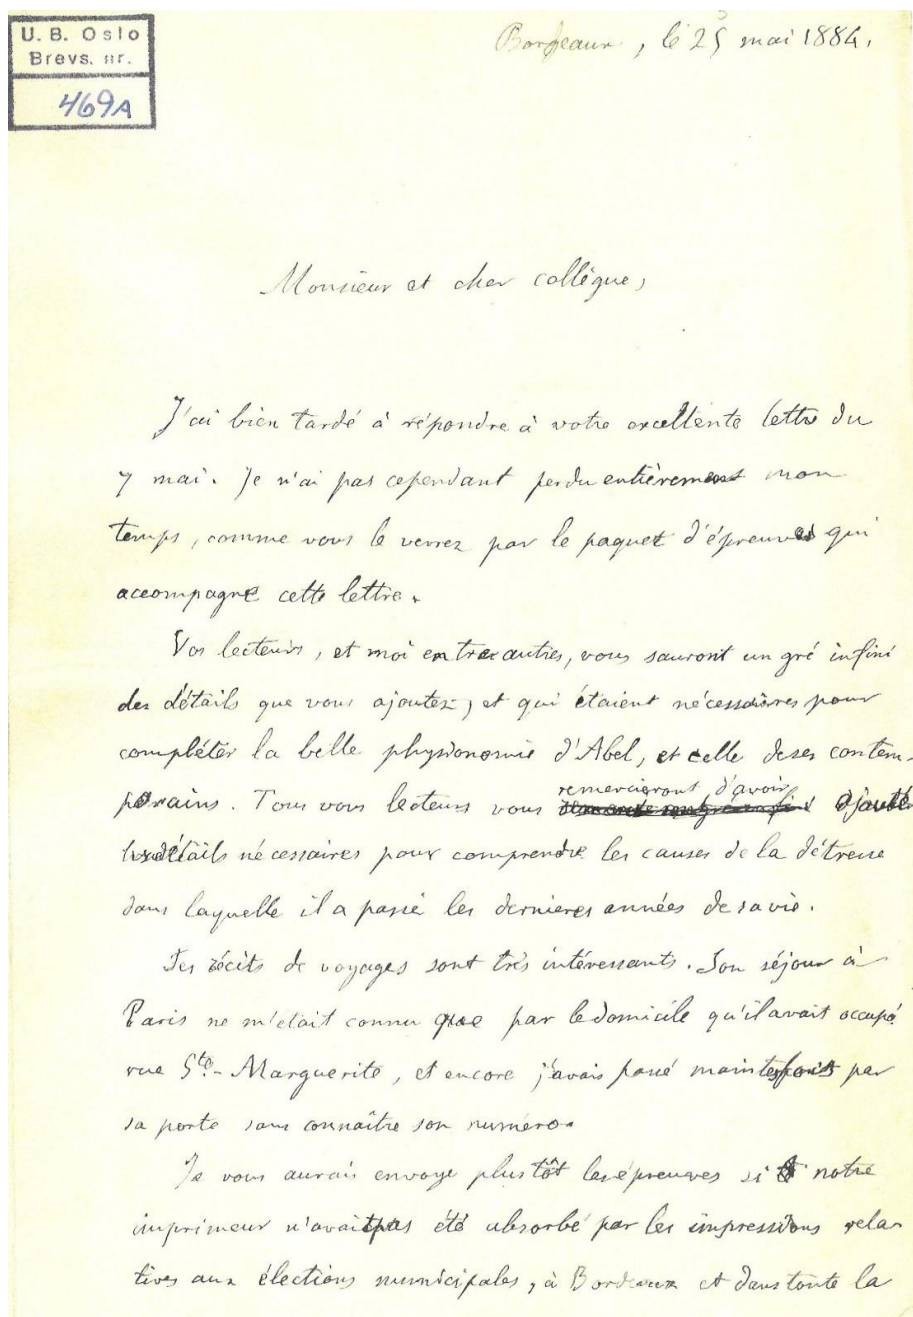 U. B. Oslo
Brevs. nr.
469A
Bordeaux, le 25 mai 1884.
Monsieur et cher collègue,
J'ai bien tardé à répondre à votre excellente lettre du
7 mai. Je n'ai pas cependant perdu entièrement mon
temps, comme vous le verrez par le paquet d'épreuves qui
accompagne cette lettre.
Vos lecteurs, et moi entre autres, vous sauront un gré infini
des détails que vous ajoutez, et qui étaient nécessaires pour
compléter la belle physionomie d'Abel, et celle de ses contem-
porains. Tous vos lecteurs vous remercieront d'avoir ajouté
les détails nécessaires pour comprendre les causes de la détresse
dans laquelle il a passé les dernières années de sa vie.
Ses récits de voyages sont très intéressants. Son séjour à
Paris ne m'etait connu que par le domicile qu'il avait occupé
rue Ste.- Marguerite, et encore j'avais passé maintes fois par
sa porte sans connaître son numéro.
Je vous aurais envoye plus tôt les épreuves si notre
imprimeur n'avait pas été absorbé par les impressions rela-
tives aux élections municipales, à Bordeaux et dans toute la